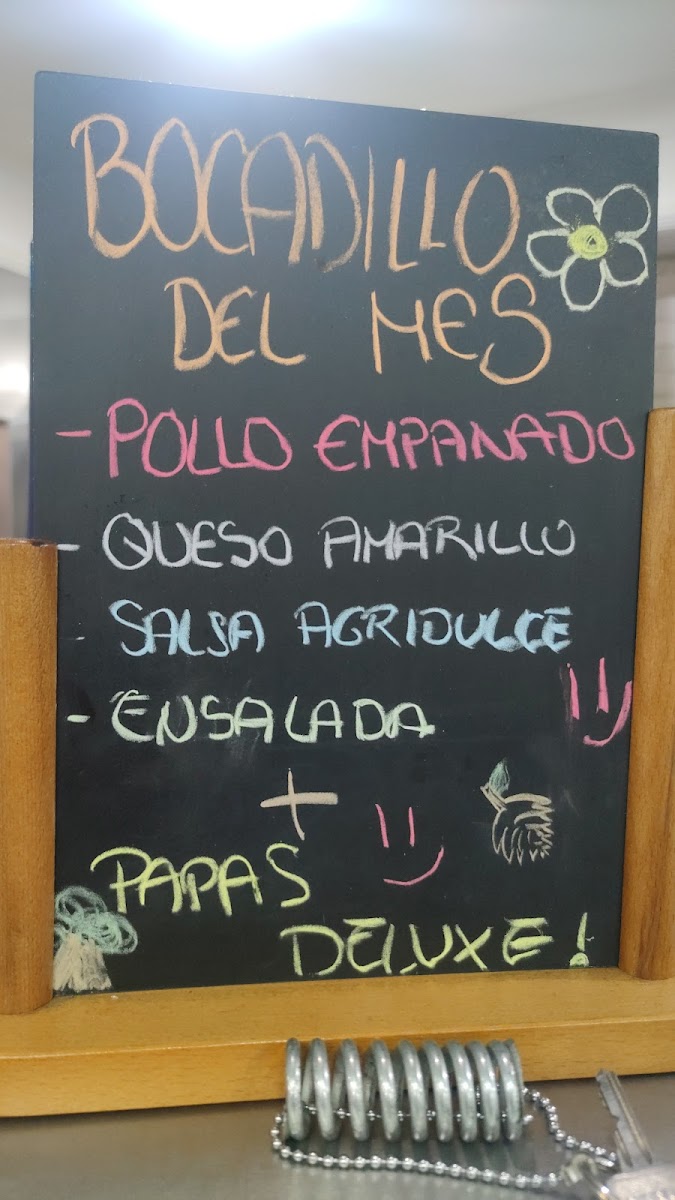 BOCADILLO
DEL MES
- POLLO EMPANADO
- QUESO AMARILLO
- SALSA AGRIDULCE
- ENSALADA
+
PAPAS
DELUXE!